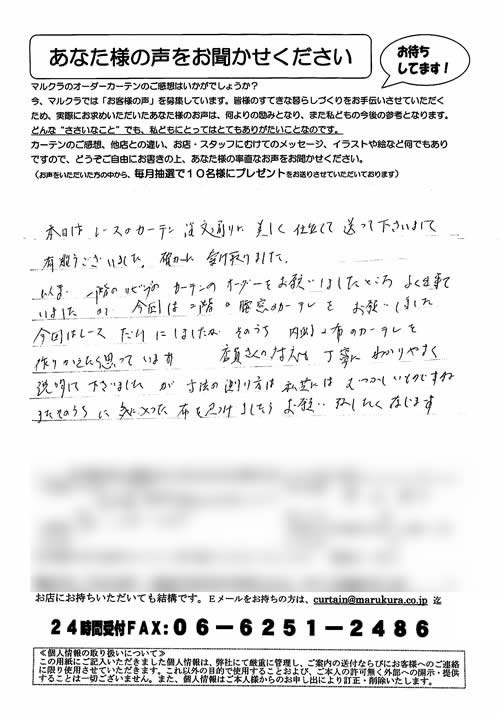 あなた様の声をお聞かせください
お待ち
してます！
マルクラのオーダーカーテンのご感想はいかがでしょうか？
今、マルクラでは「お客様の声」を募集しています。皆様のすてきな暮らしづくりをお手伝いさせていただく
ため、実際にお求めいただいたあなた様のお声は、何よりの励みとなり、また私どもの今後の参考となります。
どんな“ささいなこと”でも、私どもにとってはとてもありがたいことなのです。
カーテンのご感想、他店との違い、お店・スタッフにむけてのメッセージ、イラストや絵など何でもあり
ですので、どうぞご自由にお書きの上、あなた様の率直なお声をお聞かせください。
（お声をいただいた方の中から、毎月抽選で１０名様にプレゼントをお送りさせていただいております）
本日は レースのカーテン 注文通りに 美しく 仕立て 送って下さいまして
有難うございました。確かに 受け取りました。
以前 二階のリビングの カーテンのオーダーを お願いしましたところ よく出来て
いました ので 今回は 二階の 腰窓のカーテンを お願いしました
今回はレース だけにしましたが そのうち 内側の布のカーテンを
作りかえたく思っています 店員さんの対応も 丁寧に わかりやすく
説明して下さいました が 寸法の測り方は 私共には むつかしいものですね
またそのうちに 気に入った 布を見つけましたら お願い 致したく 存じます
お店にお持ちいただいても結構です。Ｅメールをお持ちの方は、curtain@marukura.co.jp 迄
２４時間受付FAX:０６－６２５１－２４８６
≪個人情報の取り扱いについて≫
この用紙にご記入いただきました個人情報は、弊社にて厳重に管理し、ご案内の送付ならびにお客様へのご連絡
に限り使用させていただきます。これ以外の目的で使用することおよび、ご本人の許可無く外部への開示・提供
することは一切ございません。また、個人情報はご本人様からのお申し出により訂正・削除いたします。